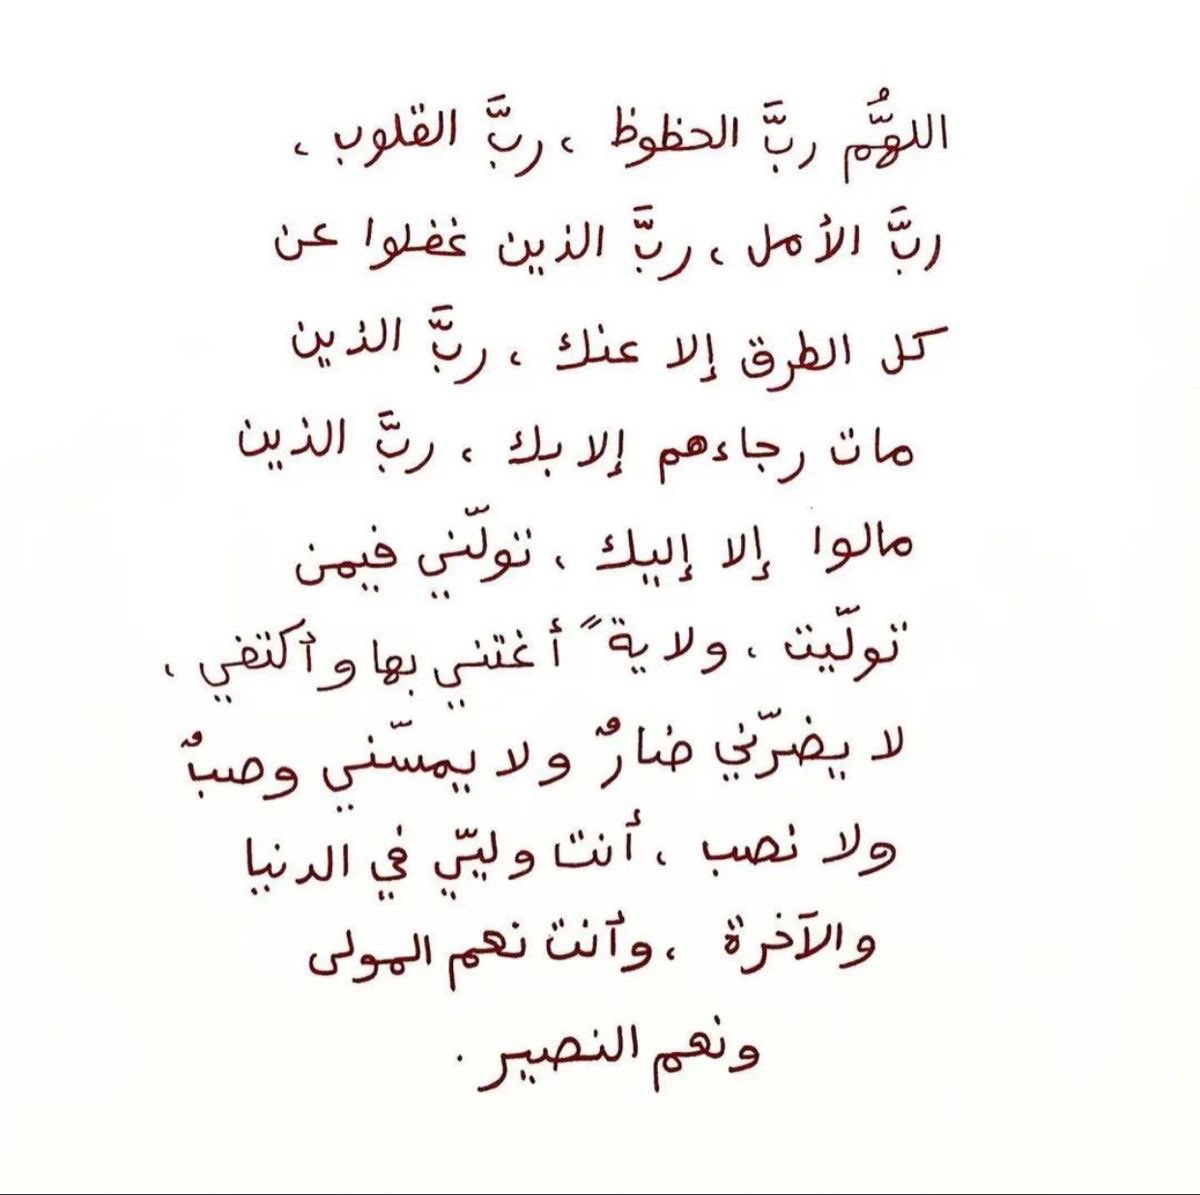 اللهُّم ربَّ الحظوظ ، ربَّ القلوب ،
ربَّ الأمل ، ربَّ الذين غفلوا عن
كل الطرق إلا عنك ، ربَّ الذين
مات رجاءهم إلا بك ، ربَّ الذين
مالوا إلا إليك ، تولّني فيمن
تولّيت ، ولاية ً أغتني بها وأكتفي ،
لا يضرّني ضارٌ ولا يمسّني وصبٌ
ولا نصب ، أنت وليّي في الدنيا
والآخرة ، وأنت نعم المولى
ونعم النصير .